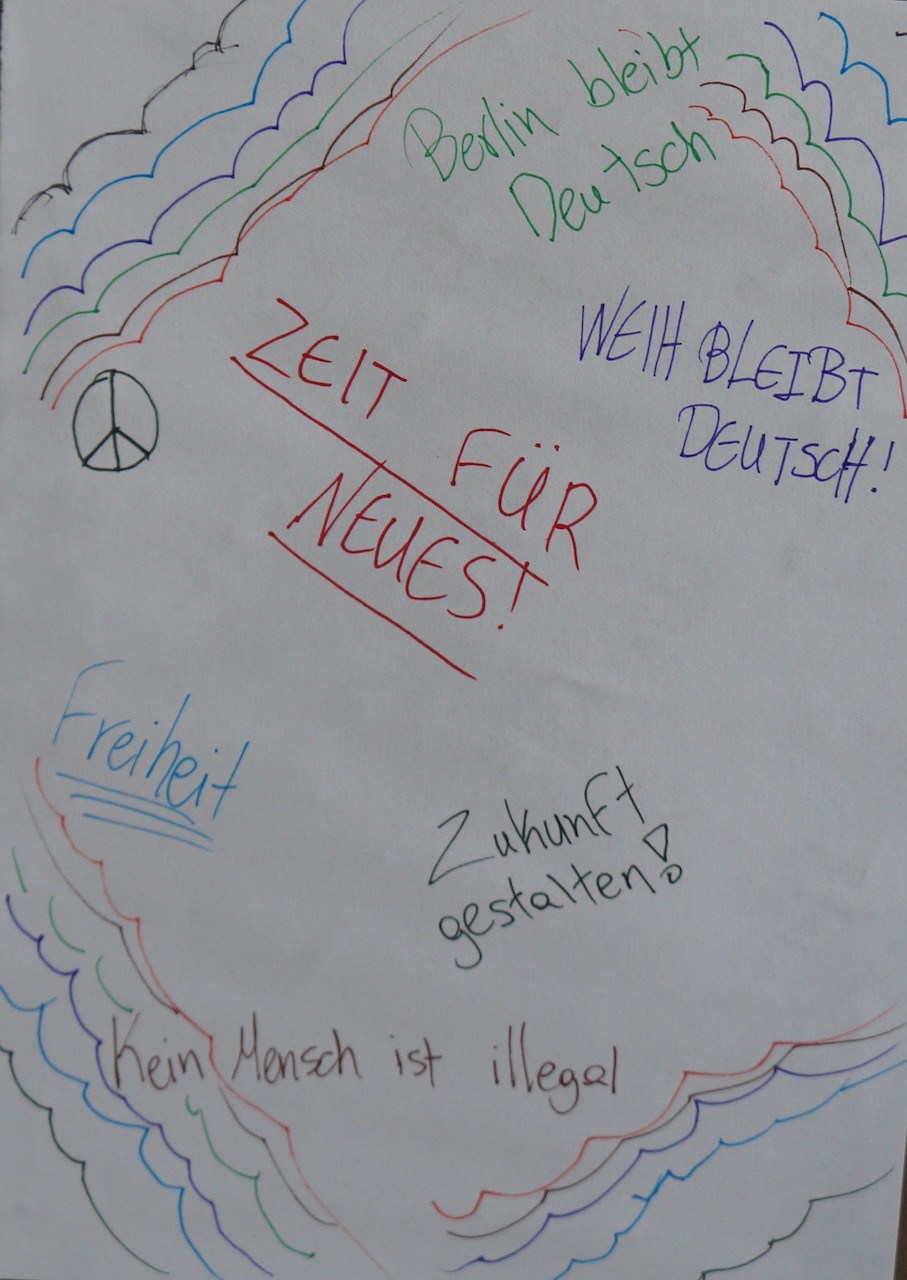 Berlin bleibt
Deutsch
WEIH BLEIBT
DEUTSCH!
ZEIT FÜR
NEUES!
Freiheit
Zukunft
gestalten!
Kein Mensch ist illegal